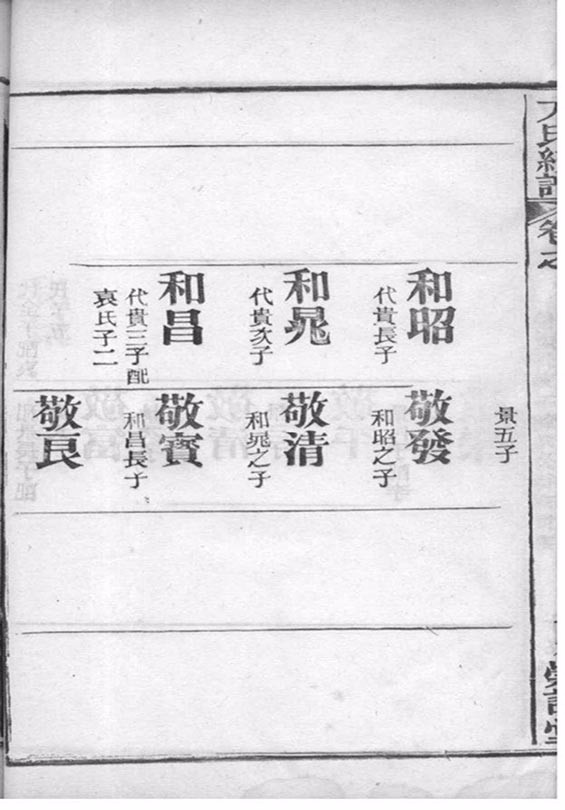 氏經譜 卷之
景五子
和昭
代貴長子
和晁
代貴次子
和昌
代貴三子配
袁氏子二
敬發
和昭之子
敬清
和晁之子
敬賓
和昌長子
敬良